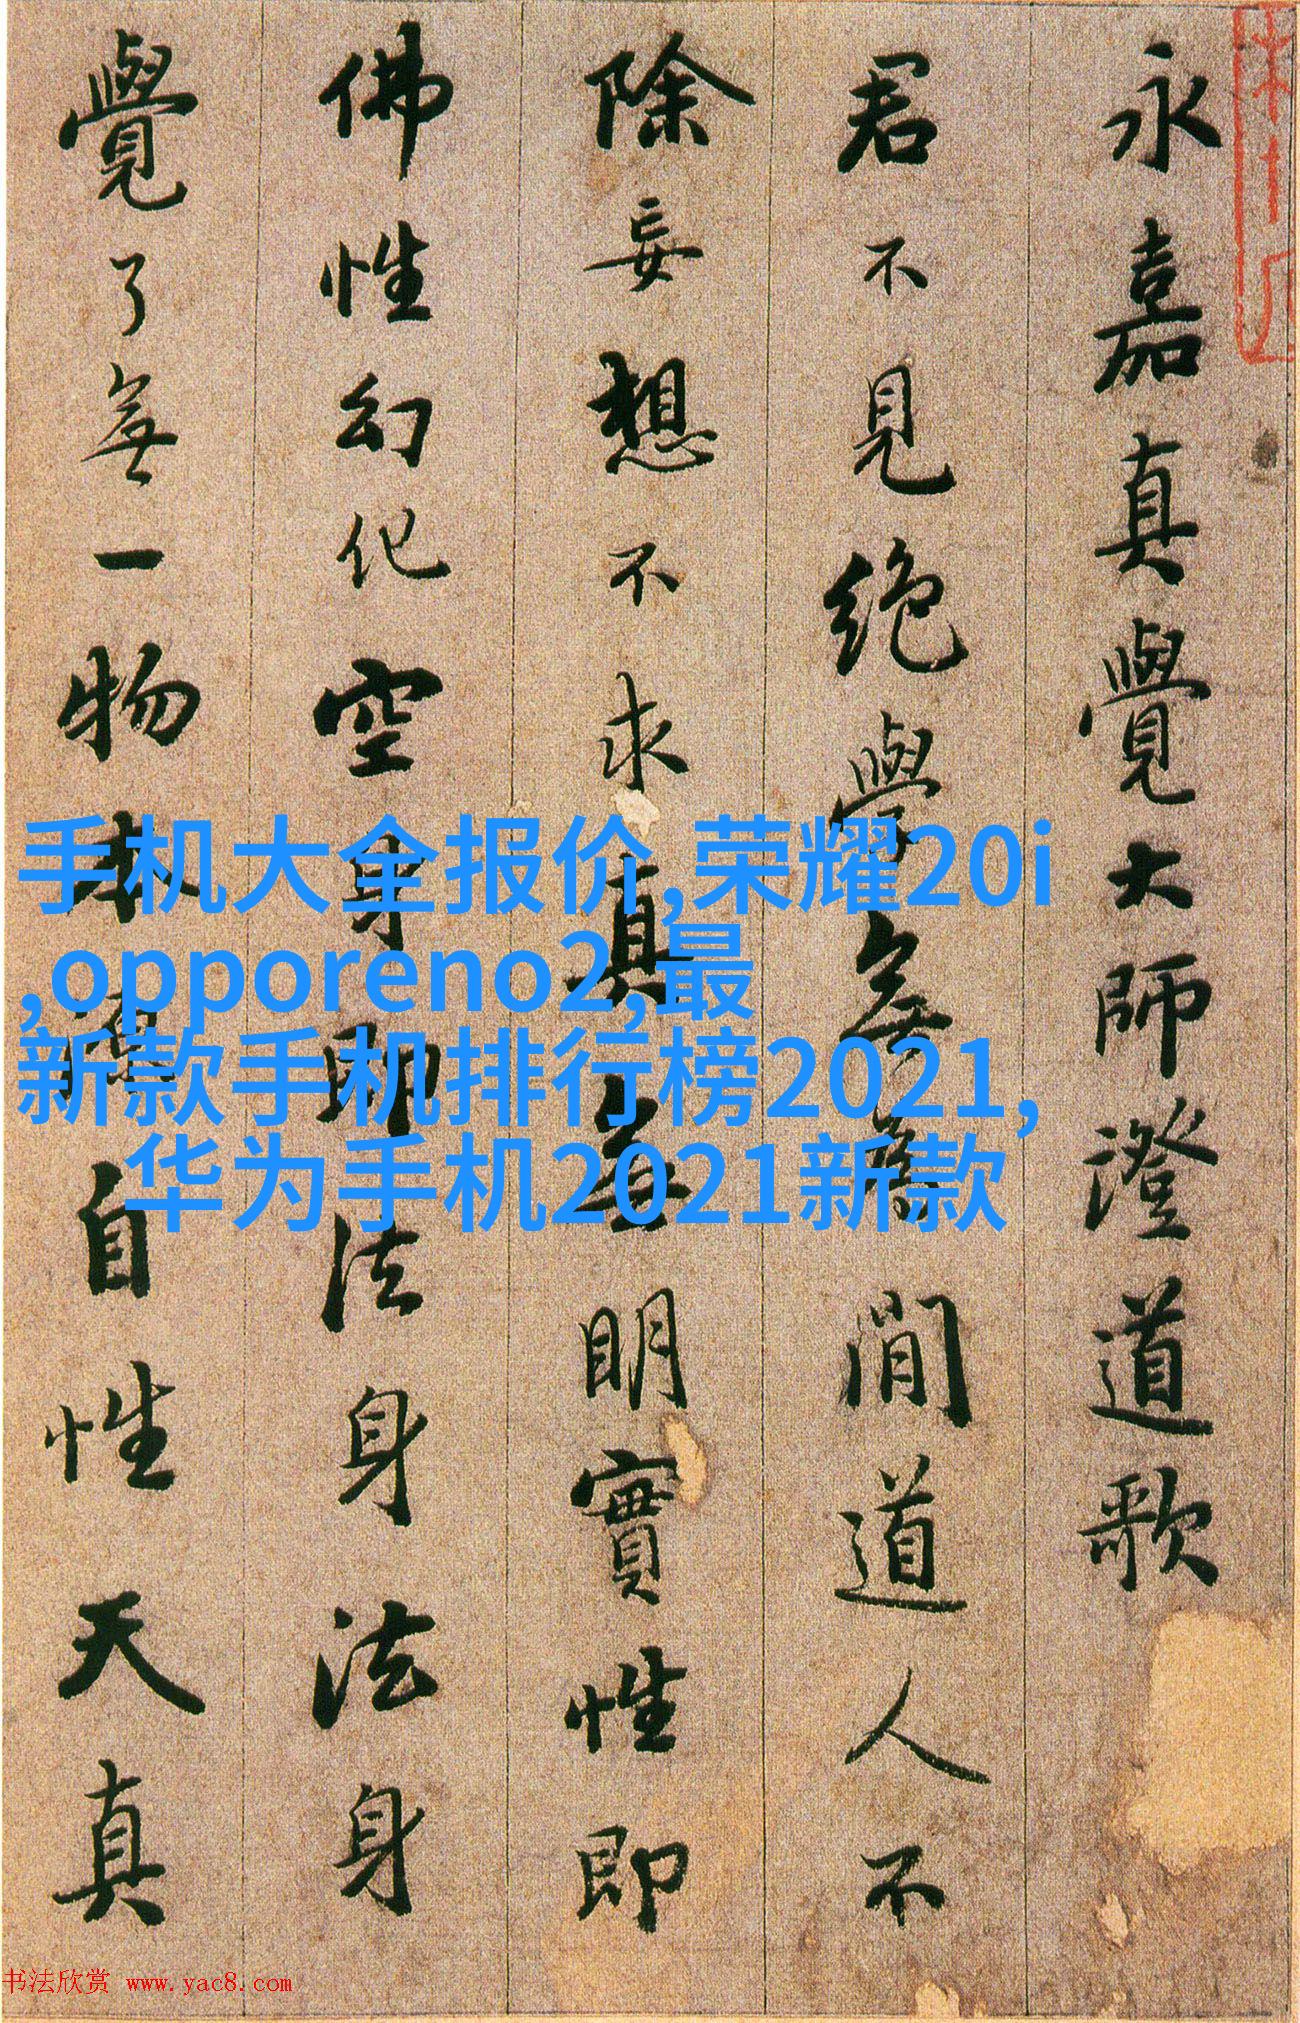 永嘉真覺大師澄道歌
君不見绝學無為閒道人不
除妄想不求真無明實性即
佛性幻化空身即法身法身
覺了無一物本源自性天真
手机大全报价,荣耀20i
,opporeno2,最
新款手机排行榜2021,
华为手机2021新款
书法欣赏 www.yac8.com